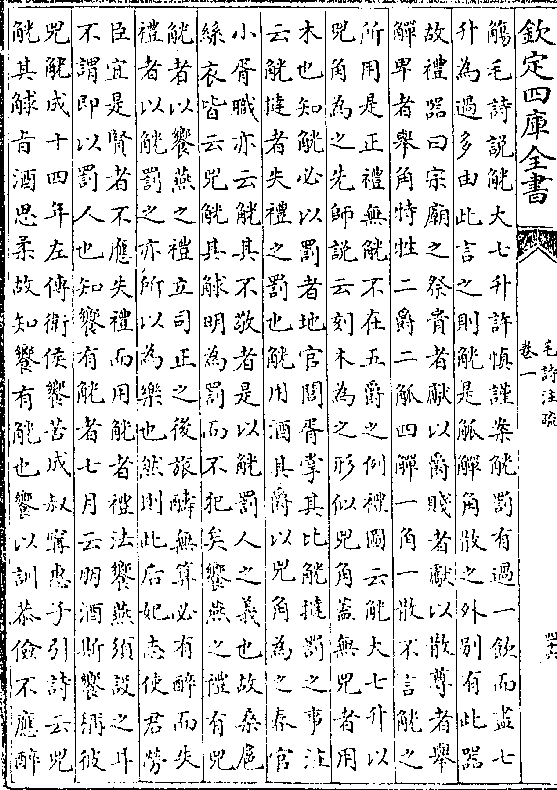 欽定四庫全書
毛詩注疏
卷一
觴毛詩説觥大七升許慎謹案觥罰有過一飲而盡七
升為過多由此言之則觥是觚觶角散之外别有此器
故禮器曰宗廟之祭貴者獻以爵賤者獻以散尊者舉
觶卑者舉角特牲二爵二觚四觶一角一散不言觥之
所用是正禮無觥不在五爵之例禮圖云觥大七升以
兕角為之先師説云刻木為之形似兕角蓋無兕者用
木也知觥必以罰者地官閭胥掌其比觥撻罰之事注
云觥撻者失禮之罰也觥用酒其爵以兕角為之春官
小胥職亦云觥其不敬者是以觥罰人之義也故桑扈
絲衣皆云兕觥其觩明為罰而不犯矣饗燕之禮有兕
觥者以饗燕之禮立司正之後旅醻無算必有醉而失
禮者以觥罰之亦所以為樂也然則此后妃志使君勞
臣宜是賢者不應失禮而用觥者禮法饗燕須設之耳
不謂即以罰人也知饗有觥者七月云朋酒斯饗稱彼
兕觥成十四年左傳衛侯饗苦成叔甯惠子引詩云兕
觥其觩旨酒思柔故知饗有觥也饗以訓恭儉不應醉